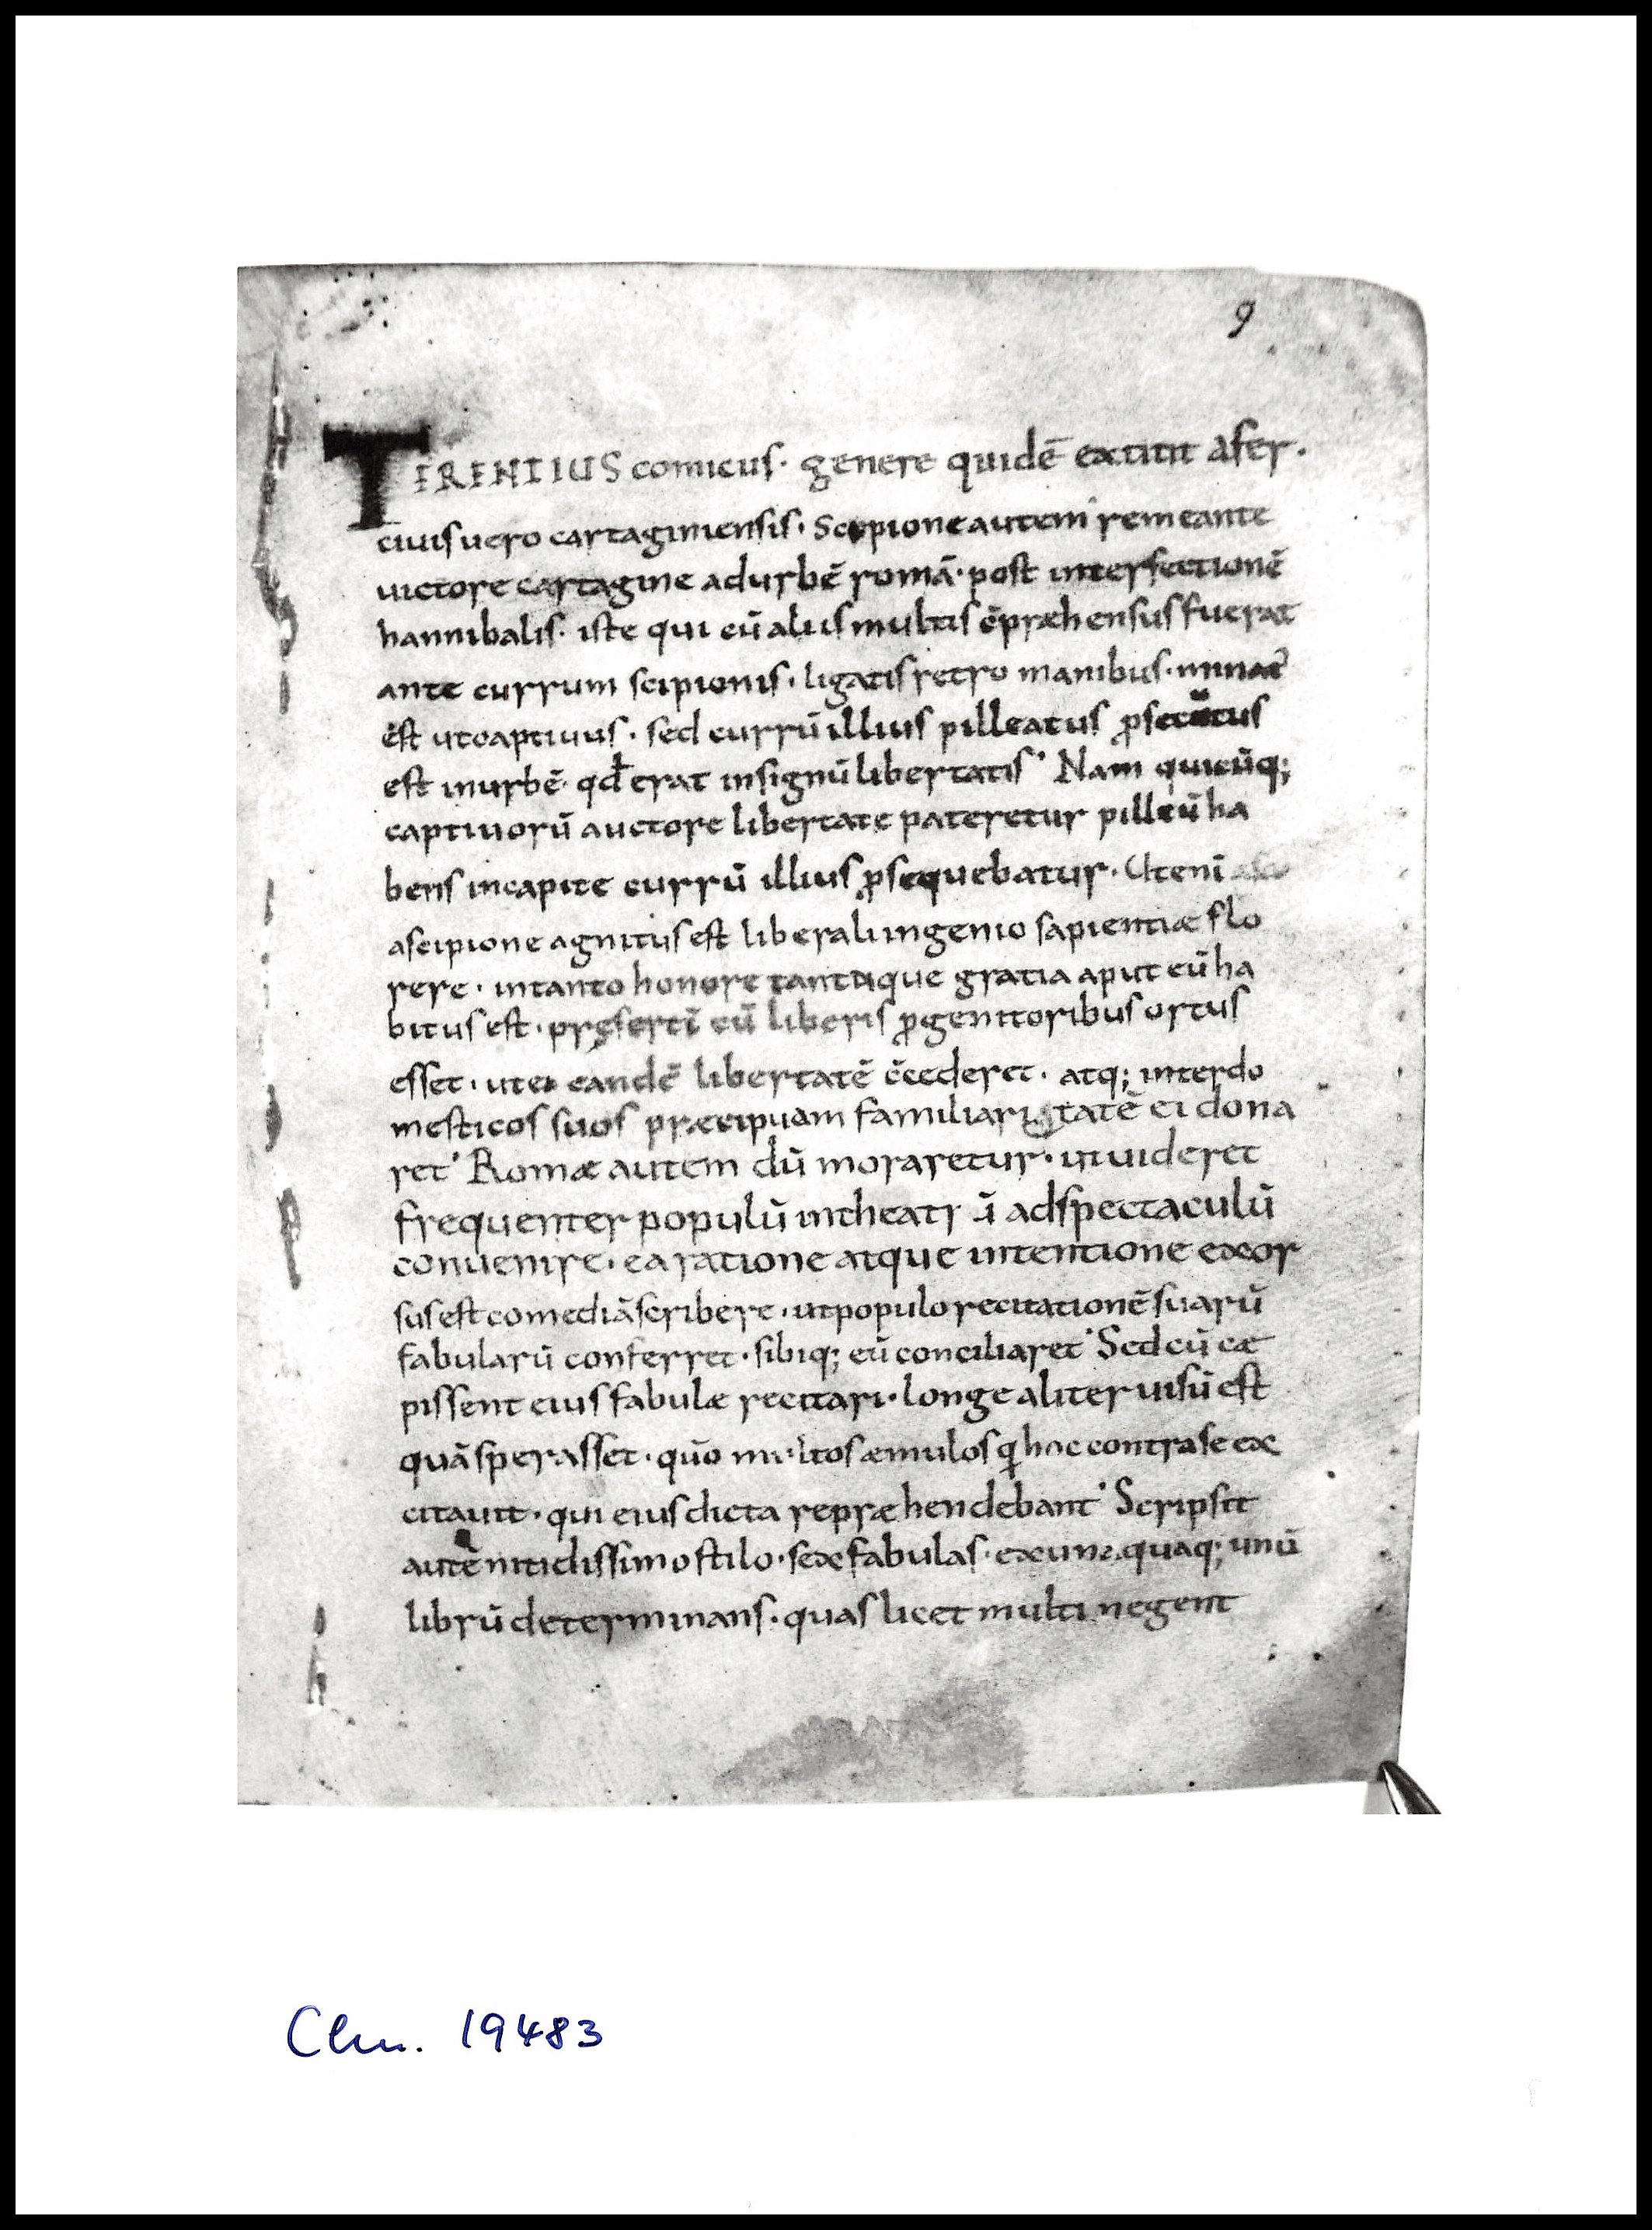 9
TERENTIUS comicus · genere quidē extitit afer ·
ciuis uero cartaginiensis · Scipione autem remeante
uictore cartagine ad urbē romā · post interfectionē
hannibalis · iste qui cū aliis multis cōpræhensus fuerat
ante currum scipionis · ligatis retro manibus ·
est ut captiuus · sed currū illius pilleatus ꝓsecutus
est in urbē · qđ erat insignū libertatis · Nam quicūq;
captiuorū auctore libertate pateretur pilleū ha
bens in capite currū illius ꝓsequebatur · Ut enī
a scipione agnitus est liberali ingenio sapientiæ flo
rere · in tanto honore tantaque gratia aput eū ha
bitus est · presertī cū liberis ꝓgenitoribus ortus
esset · ut ei eandē libertatē cōcederet · atq; inter do
mesticos suos præcipuam familiaritatē ei dona
ret · Romæ autem dū moraretur · ut uideret
frequenter populū in theatrū ad spectaculū
conuenire · ea ratione atque intentione exor
sus est comediā scribere · ut populo recitationē suarū
fabularū conferret · sibiq; eū conciliaret · Sed cū cæ
pissent eius fabulæ recitari · longe aliter uisū est
quā sperasset · quō multos æmulos hoc contra se ex
citauit · qui eius dicta repræhendebant · Scripsit
autē nitidissimo stilo · sex fabulas · ex unaquaq; unū
librū determinans · quas licet multi negent
Clm. 19483